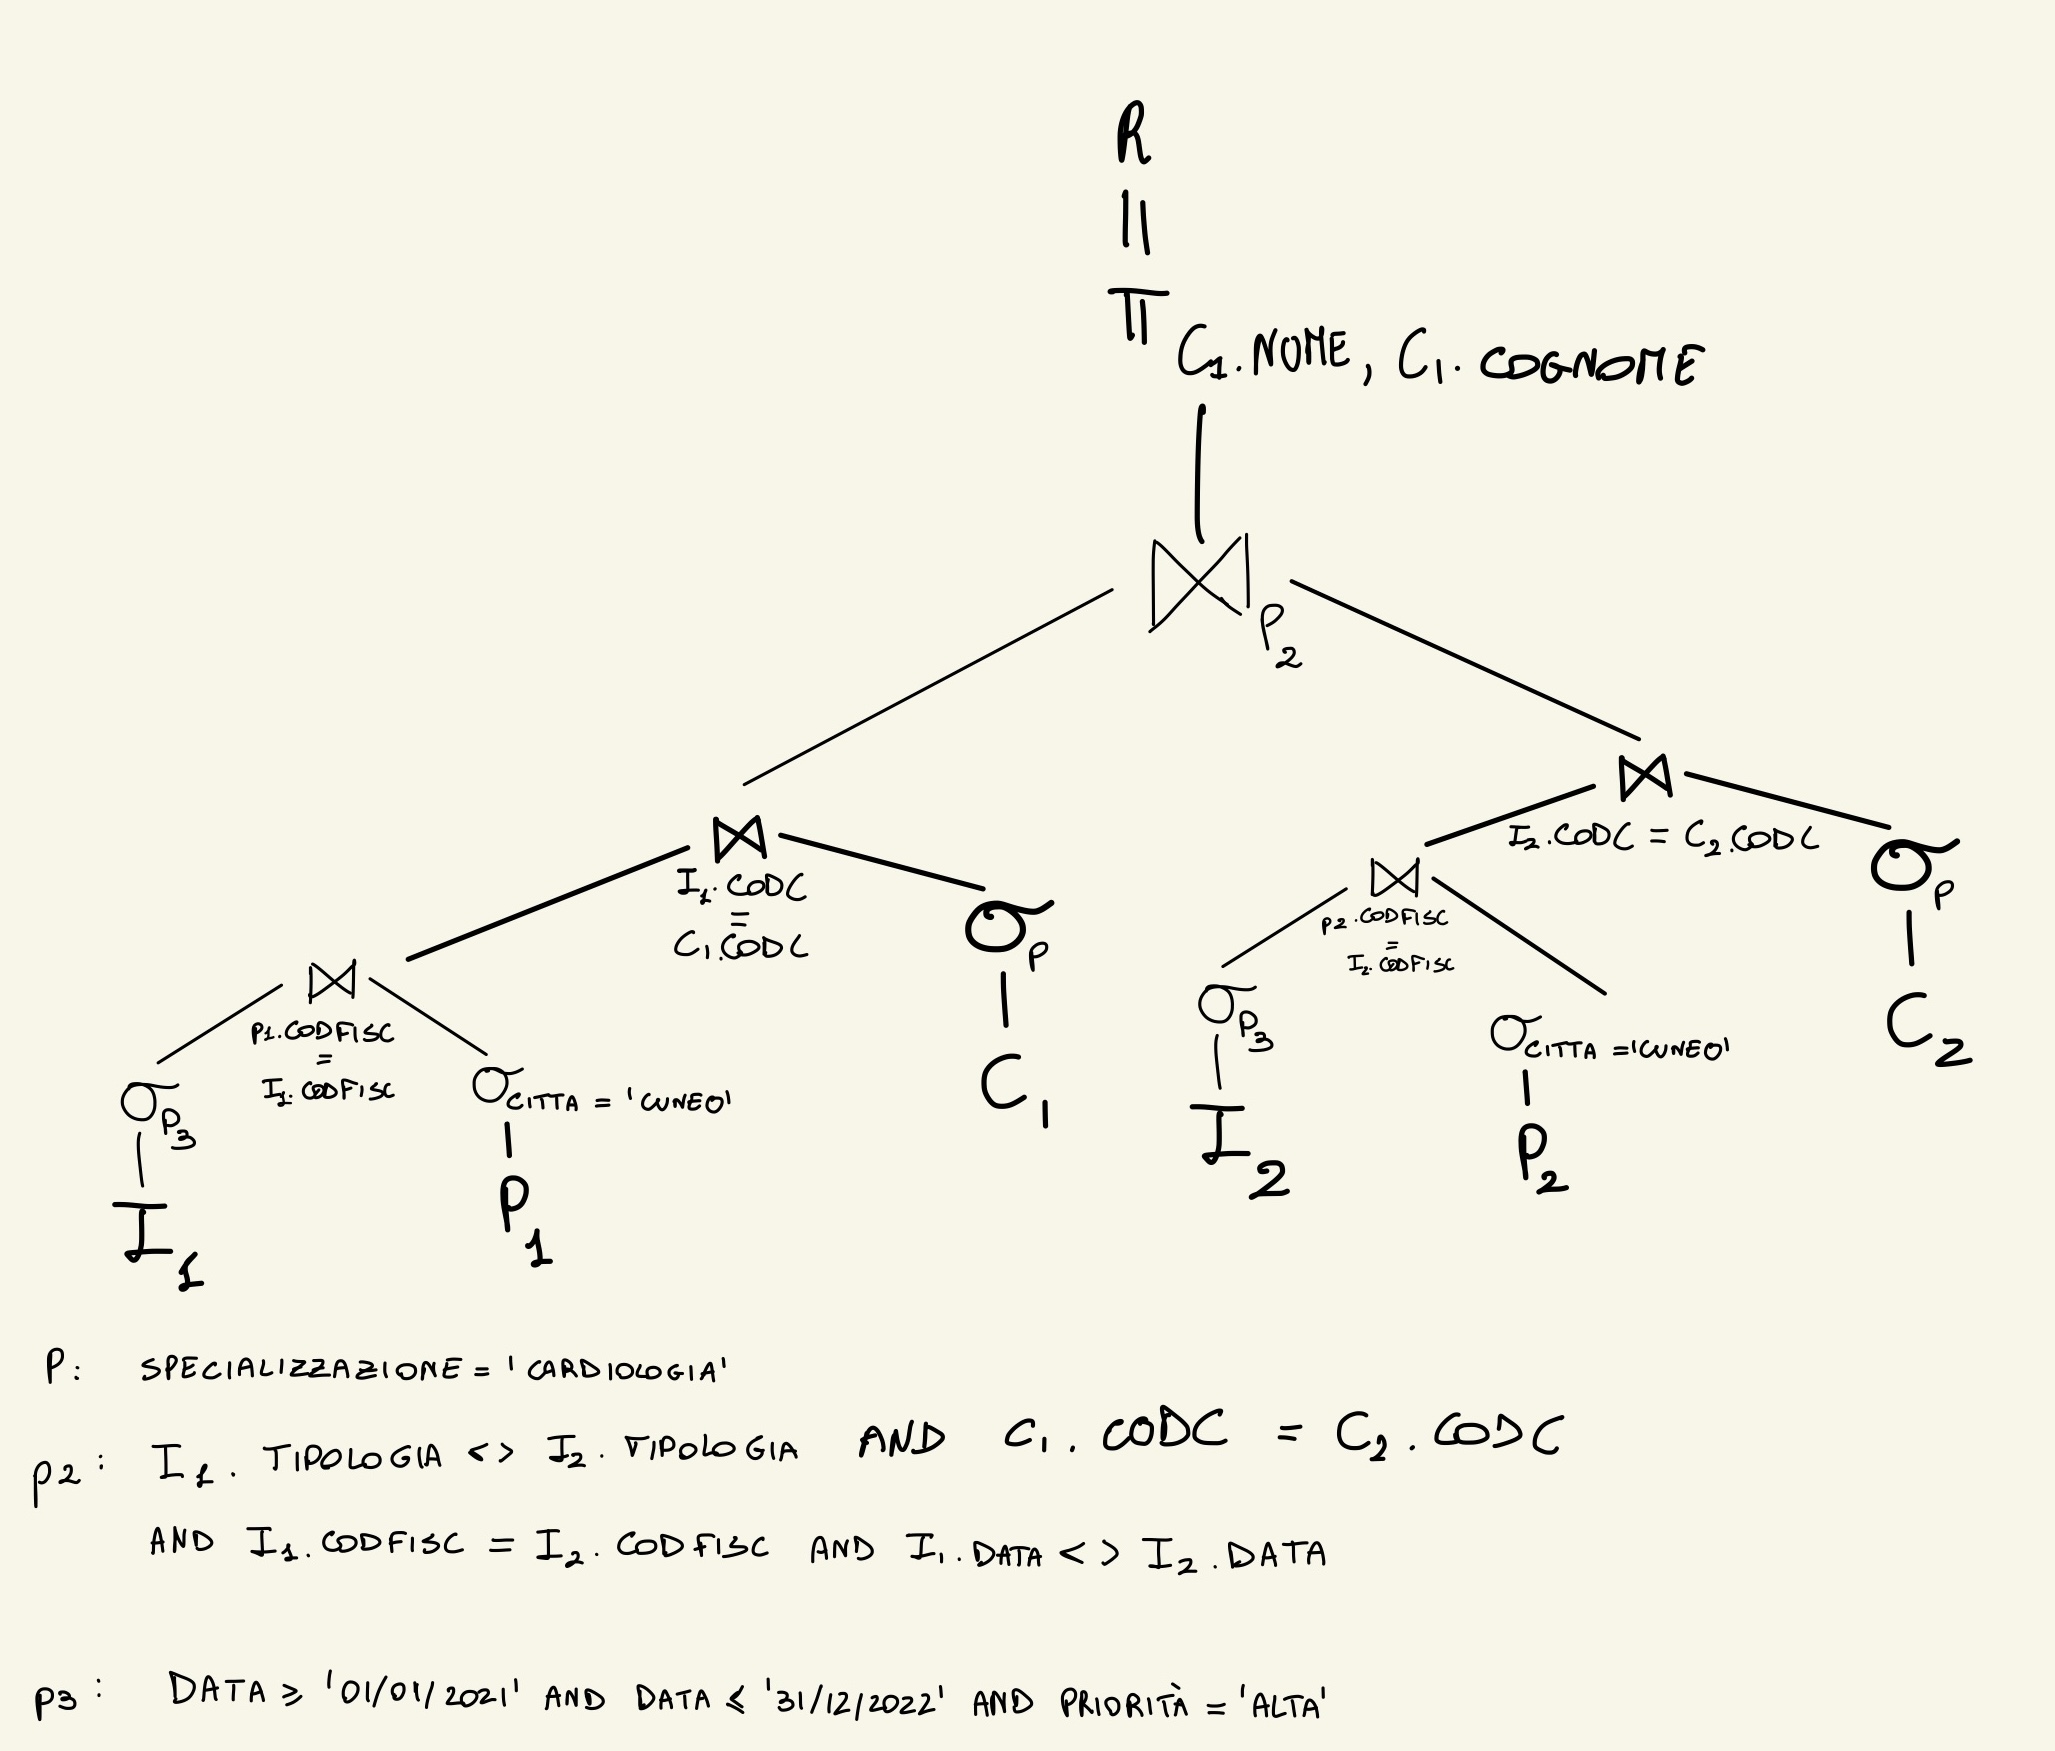 R
=
π C1.NOME, C1.COGNOME
⋈ P2
⋈ I1.CODC = C1.CODC
⋈ I2.CODC = C2.CODC
σ P
C2
⋈ P2.CODFISC = I2.CODFISC
σ P
C1
⋈ P1.CODFISC = I1.CODFISC
σ P3
I2
σ CITTA = 'CUNEO'
P2
σ P3
I1
σ CITTA = 'CUNEO'
P1
P: SPECIALIZZAZIONE = 'CARDIOLOGIA'
P2: I1.TIPOLOGIA <> I2.TIPOLOGIA AND C1.CODC = C2.CODC
AND I1.CODFISC = I2.CODFISC AND I1.DATA <> I2.DATA
P3: DATA ≥ '01/01/2021' AND DATA ≤ '31/12/2022' AND PRIORITÀ = 'ALTA'